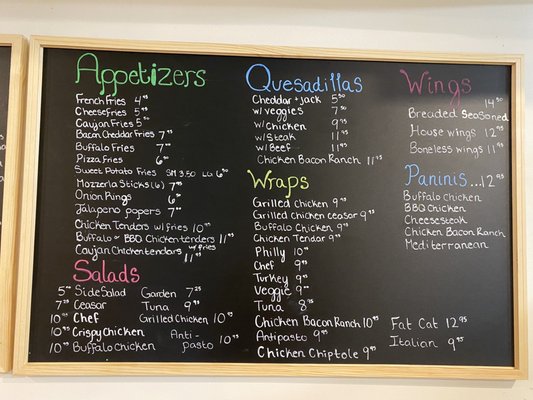 Appetizers
French Fries 4.95
Cheese Fries 5.95
Caujan Fries 5.50
Bacon Cheddar Fries 7.95
Buffalo Fries 7.95
Pizza Fries 6.00
Sweet Potato Fries SM 3.50 LG 6.50
Mozzerla Sticks (6) 7.95
Onion Rings 6.00
Jalapeno poppers 7.00
Chicken Tenders w/ fries 10.95
Buffalo or BBQ Chicken tenders 11.95
Caujan Chicken tenders w/ fries 11.95
Salads
5.00 Side Salad
7.25 Ceasar
10.95 Chef
10.95 Crispy Chicken
10.95 Buffalo Chicken
Garden 7.25
Tuna 9.95
Grilled Chicken 10.95
Anti-pasto 10.95
Quesadillas
Cheddar + jack 5.50
w/ veggies 7.50
w/ Chicken 9.95
w/ Steak 11.95
w/ Beef 11.95
Chicken Bacon Ranch 11.95
Wraps
Grilled Chicken 9.95
Grilled Chicken ceasor 9.95
Buffalo Chicken 9.95
Chicken Tendar 9.95
Philly 10.95
Chef 9.95
Turkey 9.95
Veggie 9.00
Tuna 8.95
Chicken Bacon Ranch 10.95
Antipasto 9.95
Chicken Chiptole 9.95
Wings
14.50
Breaded Seasoned
House wings 12.95
Boneless wings 11.95
Paninis...12.95
Buffalo Chicken
BBQ Chicken
Cheesesteak
Chicken Bacon Ranch
Mediterranean
Fat Cat 12.95
Italian 9.95